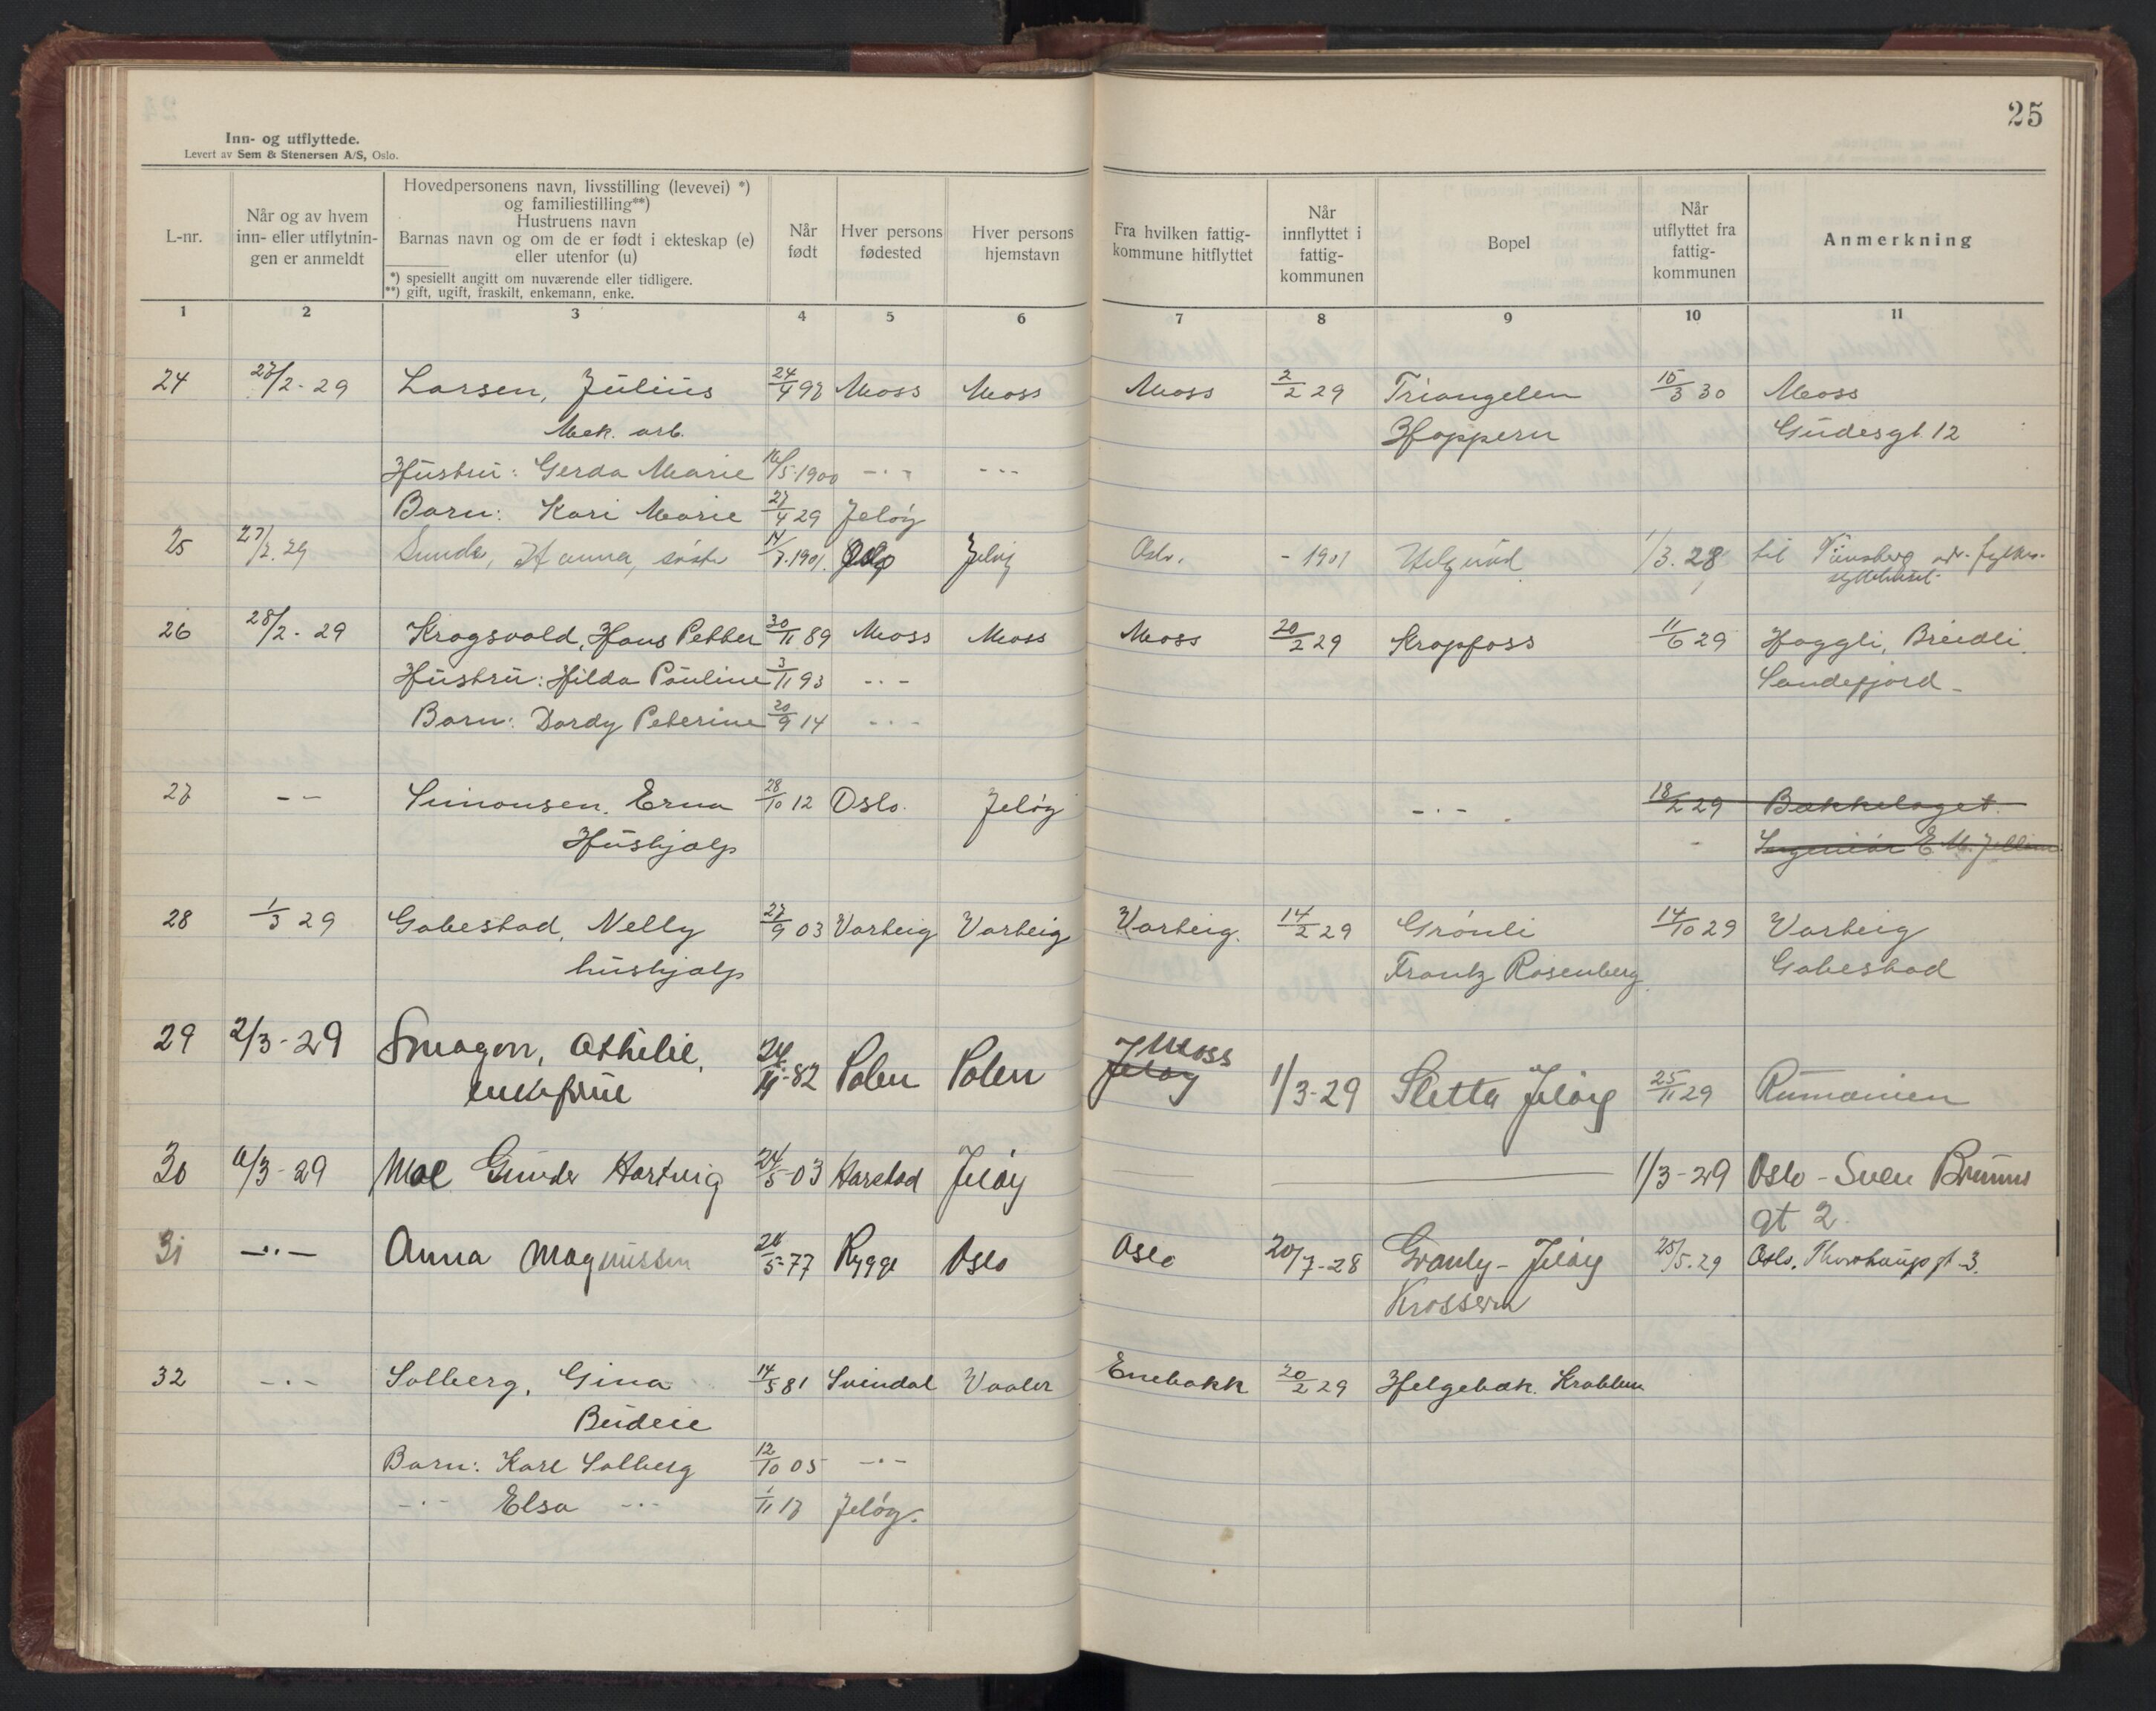 25
Inn- og utflyttede.
Levert av Sem & Stenersen A/S, Oslo.
L-nr.
Når og av hvem inn- eller utflytnin-gen er anmeldt
Hovedpersonens navn, livsstilling (levevei) *)
og familiestilling**)
Hustruens navn
Barnas navn og om de er født i ekteskap (e)
eller utenfor (u)
*) spesiellt angitt om nuværende eller tidligere.
**) gift, ugift, fraskilt, enkemann, enke.
Når født
Hver persons fødested
Hver persons hjemstavn
Fra hvilken fattig-kommune hitflyttet
Når innflyttet i fattig-kommunen
Bopel
Når utflyttet fra fattig-kommunen
Anmerkning
1 2 3 4 5 6 7 8 9 10 11
24 27/2-29 Larsen, Julius 24/4 97 Moss Moss Moss 2/2 29 Triangelen 15/3 30 Moss
Mek. arb. Hoppern Gudesgt. 12
Hustru: Gerda Marie 16/5-1900 -"- -"-
Barn: Kari Marie 27/4 29 Jeløy
25 27/2. 29 Sunde, Hanna, 14/7.1901. Jeløy Oslo. - 1901 1/3. 28 til Tünsberg adr. fylkes-
26 28/2-29 Kragsvold, Hans Petter 30/11 89 Moss Moss Moss 20/2 29 Kropfoss 11/6 29 Haggli, Breidli.
Hustru: Hilda Pauline 3/11 93 -"- Sandefjord-
Barn: Dordy Peterine 20/9 14 -"-
27 -"- Simonsen, Erna 28/10 12 Oslo. Jeløy -"- 18/2 29 Bækkelaget.
Hushjælp Ingeniør E. M.
28 1/3 29 Gabestad, Nelly 27/9 03 Varteig Varteig Varteig. 14/2 29 Grønli 14/10 29 Varteig
hushjælp Frantz Rosenberg Gabestad
29 2/3-29 Smagon, Othilie, 24/11-82 Polen Polen Moss Jeløy 1/3-29 Sletta Jeløy 25/11 29 Rumænien
enkefrue
30 11/3-29 Moe Gunder Hartvig 24/5-03 Harstad Jeløy 1/3-29 Oslo - Sven Bruuns
gt 2.
31 -"- Anna Magnussen 24/5-77 Rygge Oslo Oslo 20/7-28 Granly - Jeløy 25/5.29 Oslo. Thorshaugs gt. 3.
Krossern
32 -"- Solberg, Gina 14/5 81 Svindal Vaaler Enebakk 20/2 29 Helgebæk. Krabben
Budeie
Barn: Kare Solberg 12/10 05 -"-
-"- Elsa -"- 1/11 17 Jeløy.